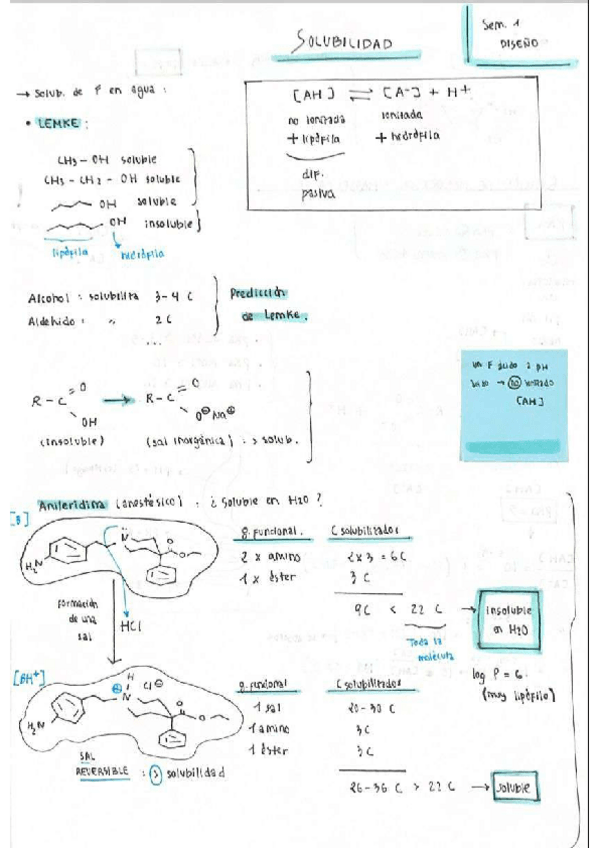 SOLUBILIDAD
Sem. 1
DISEÑO
→ Solub. de F en agua :
• LEMKE :
CH3 - OH soluble
CH3 - CH2 - OH soluble
OH soluble
OH insoluble
lipófila hidrófila
[AH] ⇌ [A-] + H+
no ionizada ionizada
+ lipófila + hidrófila
dif.
pasiva
Alcohol : solubiliza 3-4 C
Aldehído : " 2 C
...
Predicción
de Lemke.
un F ácido a pH
bajo → no ionizado
[AH]
R - C = O OH → R - C = O O⊖ Na⊕
(insoluble) (sal inorgánica) : > solub.
Anileridina (anestésico) : ¿ soluble en H2O ?
[B]
H2N N O O
g. funcional. C solubilizados
2 x amino 2x3 = 6C
1 x éster 3 C
9C < 22 C → insoluble
en H2O
Toda la
molécula
formación
de una
sal
HCl
log P = 6.
(muy lipófilo)
[BH+]
H2N H N ⊕ Cl⊖ O O
g. funcional C solubilizados
1 sal 20-30 C
1 amino 3C
1 éster 3C
26-36 C > 22 C → soluble
SAL
REVERSIBLE : > solubilidad